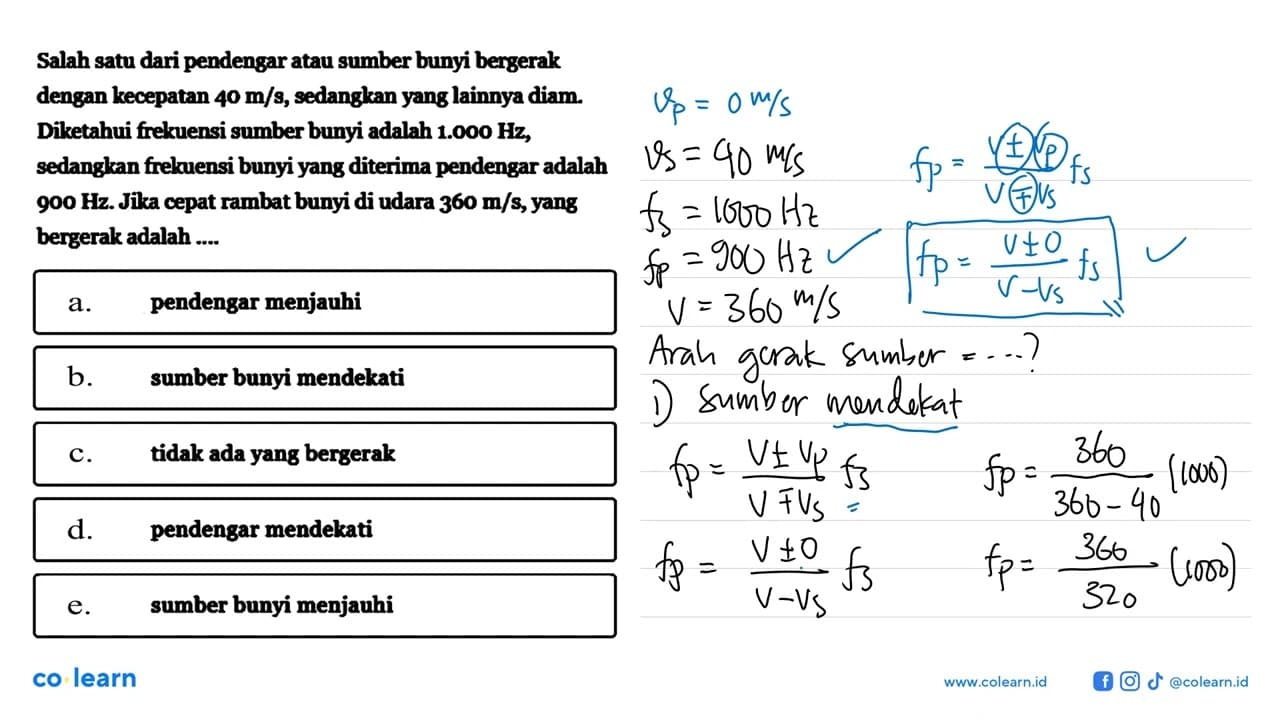 Salah satu dari pendengar atau sumber bunyi bergerak
dengan kecepatan 40 m/s, sedangkan yang lainnya diam.
Diketahui frekuensi sumber bunyi adalah 1.000 Hz,
sedangkan frekuensi bunyi yang diterima pendengar adalah
900 Hz. Jika cepat rambat bunyi di udara 360 m/s, yang
bergerak adalah ....
a. pendengar menjauhi
b. sumber bunyi mendekati
c. tidak ada yang bergerak
d. pendengar mendekati
e. sumber bunyi menjauhi
vp = 0 m/s
vs = 40 m/s
fs = 1000 Hz
fp = 900 Hz ✓
v = 360 m/s
fp = (v ± vp)/(v ∓ vs) fs
fp = (v ± 0)/(v - vs) fs ✓
Arah gerak sumber = ....?
1) sumber mendekat
fp = (v ± vp)/(v ∓ vs) fs
fp = 360/(360 - 40) (1000)
fp = (v ± 0)/(v - vs) fs
fp = 360/320 (1000)
co learn
www.colearn.id
@colearn.id